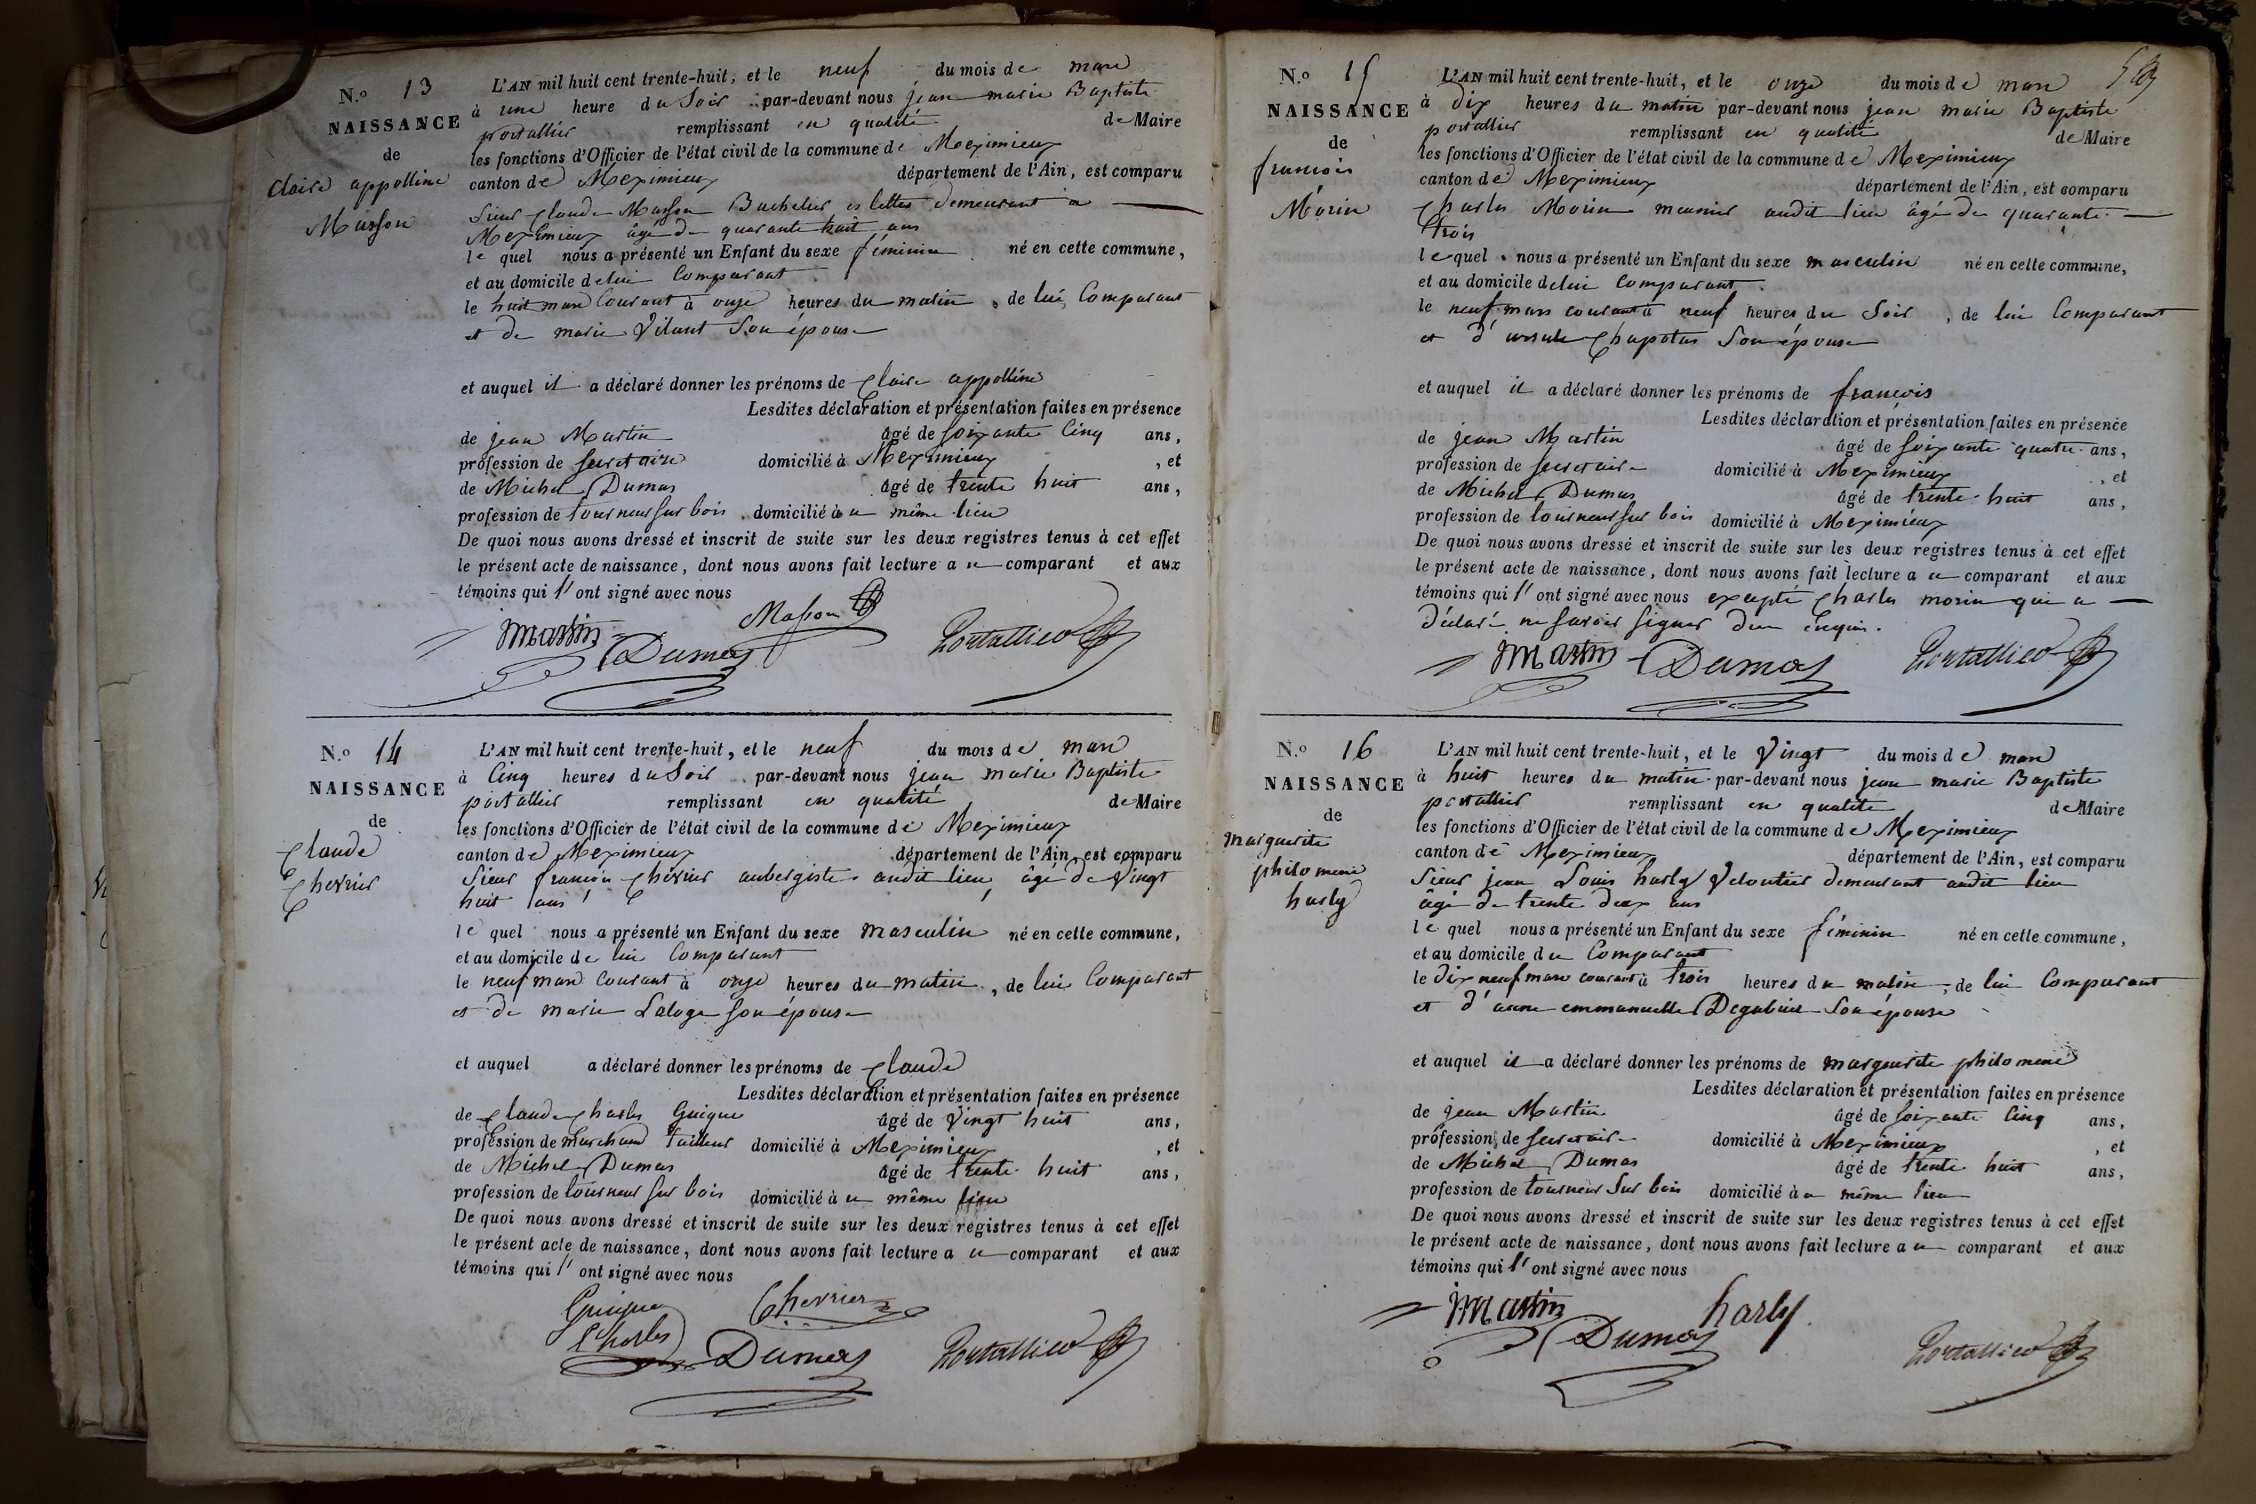 N.o 13
NAISSANCE
de
Claire appolline
Masson
L'AN mil huit cent trente-huit, et le neuf du mois de mars
à une heure du Soir par-devant nous jean marie Baptiste
portallier remplissant en qualité de Maire
les fonctions d'Officier de l'état civil de la commune de Meximieux
canton de Meximieux département de l'Ain, est comparu
Sieur Claude Masson Bachelier es lettres demeurant à
Meximieux âgé de quarante huit ans
le quel nous a présenté un Enfant du sexe féminin né en cette commune,
et au domicile de lui Comparant
le huit mars Courant à onze heures du matin, de lui Comparant
et de marie Vilant Son épouse
et auquel il a déclaré donner les prénoms de Claire appolline
Lesdites déclaration et présentation faites en présence
de jean Martin âgé de soixante Cinq ans,
profession de secretaire domicilié à Meximieux, et
de Michel Dumas âgé de trente huit ans,
profession de tourneur sur bois domicilié à u même lieu
De quoi nous avons dressé et inscrit de suite sur les deux registres tenus à cet effet
le présent acte de naissance, dont nous avons fait lecture a u comparant et aux
témoins qui l' ont signé avec nous
Masson
Martin Dumas Portallier
N.o 14
NAISSANCE
de
Claude
Chevrier
L'AN mil huit cent trente-huit, et le neuf du mois de mars
à Cinq heures du Soir par-devant nous jean marie Baptiste
portallier remplissant en qualité de Maire
les fonctions d'Officier de l'état civil de la commune de Meximieux
canton de Meximieux département de l'Ain, est comparu
Sieur francois Chevrier aubergiste audit lieu, âgé de Vingt
huit ans
le quel nous a présenté un Enfant du sexe masculin né en cette commune,
et au domicile de lui Comparant
le neuf mars Courant à onze heures du matin, de lui Comparant
et de marie Laloge son épouse
et auquel a déclaré donner les prénoms de Claude
Lesdites déclaration et présentation faites en présence
de Claude Charles Guigue âgé de Vingt huit ans,
profession de marchand tailleur domicilié à Meximieux, et
de Michel Dumas âgé de trente huit ans,
profession de tourneur sur bois domicilié à u même lieu
De quoi nous avons dressé et inscrit de suite sur les deux registres tenus à cet effet
le présent acte de naissance, dont nous avons fait lecture a u comparant et aux
témoins qui l' ont signé avec nous
Guigue Chevrier
Charles Dumas Portallier
N.o 15
NAISSANCE
de
francois
Morin
L'AN mil huit cent trente-huit, et le onze du mois de mars
à dix heures du matin par-devant nous jean marie Baptiste
portallier remplissant en qualité de Maire
les fonctions d'Officier de l'état civil de la commune de Meximieux
canton de Meximieux département de l'Ain, est comparu
Charles Morin meunier audit lieu âgé de quarante
trois
le quel nous a présenté un Enfant du sexe masculin né en cette commune,
et au domicile de lui Comparant
le neuf mars courant à neuf heures du Soir, de lui Comparant
et d'ursule Chapotas Son épouse
et auquel il a déclaré donner les prénoms de francois
Lesdites déclaration et présentation faites en présence
de jean Martin âgé de soixante quatre ans,
profession de secretaire domicilié à Meximieux, et
de Michel Dumas âgé de trente huit ans,
profession de tourneur sur bois domicilié à Meximieux
De quoi nous avons dressé et inscrit de suite sur les deux registres tenus à cet effet
le présent acte de naissance, dont nous avons fait lecture a u comparant et aux
témoins qui l' ont signé avec nous excepté Charles morin qui a
déclaré ne savoir signer d'un enquis.
Martin Dumas Portallier
N.o 16
NAISSANCE
de
marguerite
philomene
harly
L'AN mil huit cent trente-huit, et le Vingt du mois de mars
à huit heures du matin par-devant nous jean marie Baptiste
portallier remplissant en qualité de Maire
les fonctions d'Officier de l'état civil de la commune de Meximieux
canton de Meximieux département de l'Ain, est comparu
Sieur jean Louis harly Veloutier demeurant audit lieu
âgé de trente deux ans
le quel nous a présenté un Enfant du sexe féminin né en cette commune,
et au domicile du Comparant
le dix neuf mars courant à trois heures du matin, de lui Comparant
et d'anne emmanuelle Degabriel Son épouse
et auquel il a déclaré donner les prénoms de marguerite philomene
Lesdites déclaration et présentation faites en présence
de jean Martin âgé de soixante Cinq ans,
profession de secretaire domicilié à Meximieux, et
de Michel Dumas âgé de trente huit ans,
profession de tourneur Sur bois domicilié à u même lieu
De quoi nous avons dressé et inscrit de suite sur les deux registres tenus à cet effet
le présent acte de naissance, dont nous avons fait lecture a u comparant et aux
témoins qui l' ont signé avec nous
Martin harly
Dumas Portallier